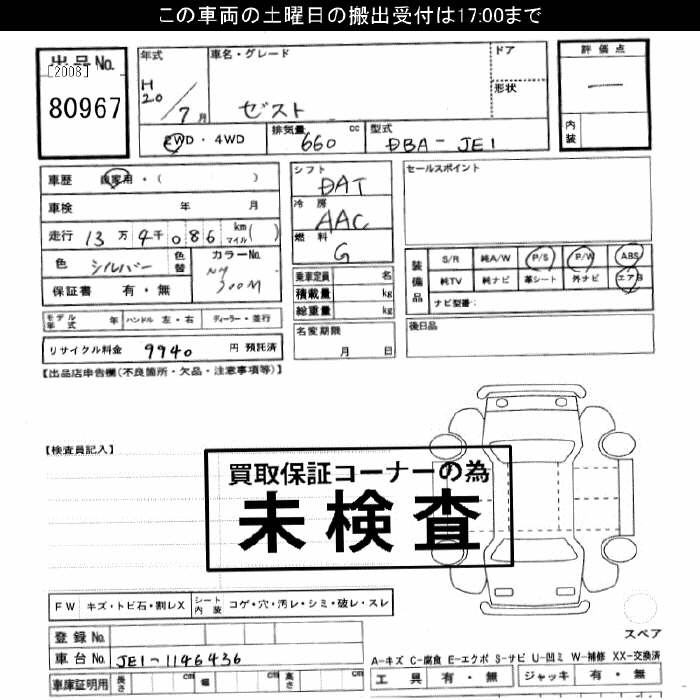 この車両の土曜日の搬出受付は17:00まで
出品No.
[2008]
80967
年式
H20/7月
車名・グレード
ゼスト
ドア
形状
評価点
—
内装
2WD・4WD
排気量 660 cc
型式 DBA-JE1
車歴 自家用・( )
車検 年 月
走行 13万4千086 km(マイル)
色 シルバー 色替
カラーNo. NH700M
保証書 有・無
シフト DAT
冷房 AAC
燃料 G
乗車定員 名
積載量 kg
総重量 kg
名変期限 月 日
セールスポイント
装備品
S/R 純A/W P/S P/W ABS
純TV 純ナビ 革シート 外ナビ エアB
ナビ型番:
後日品
モデル年式 年 ハンドル 左・右 ディーラー・並行
リサイクル料金 9940 円 預託済
【出品店申告欄(不良箇所・欠品・注意事項等)】
【検査員記入】
買取保証コーナーの為
未検査
FW キズ・トビ石・割レX シート内装 コゲ・穴・汚レ・シミ・破レ・スレ
登録No.
車台No. JE1-1146436
車庫証明用 長さ cm 幅 cm 高さ cm
スペア
A-キズ C-腐食 E-エクボ S-サビ U-凹ミ W-補修 XX-交換済
工具 有・無 ジャッキ 有・無